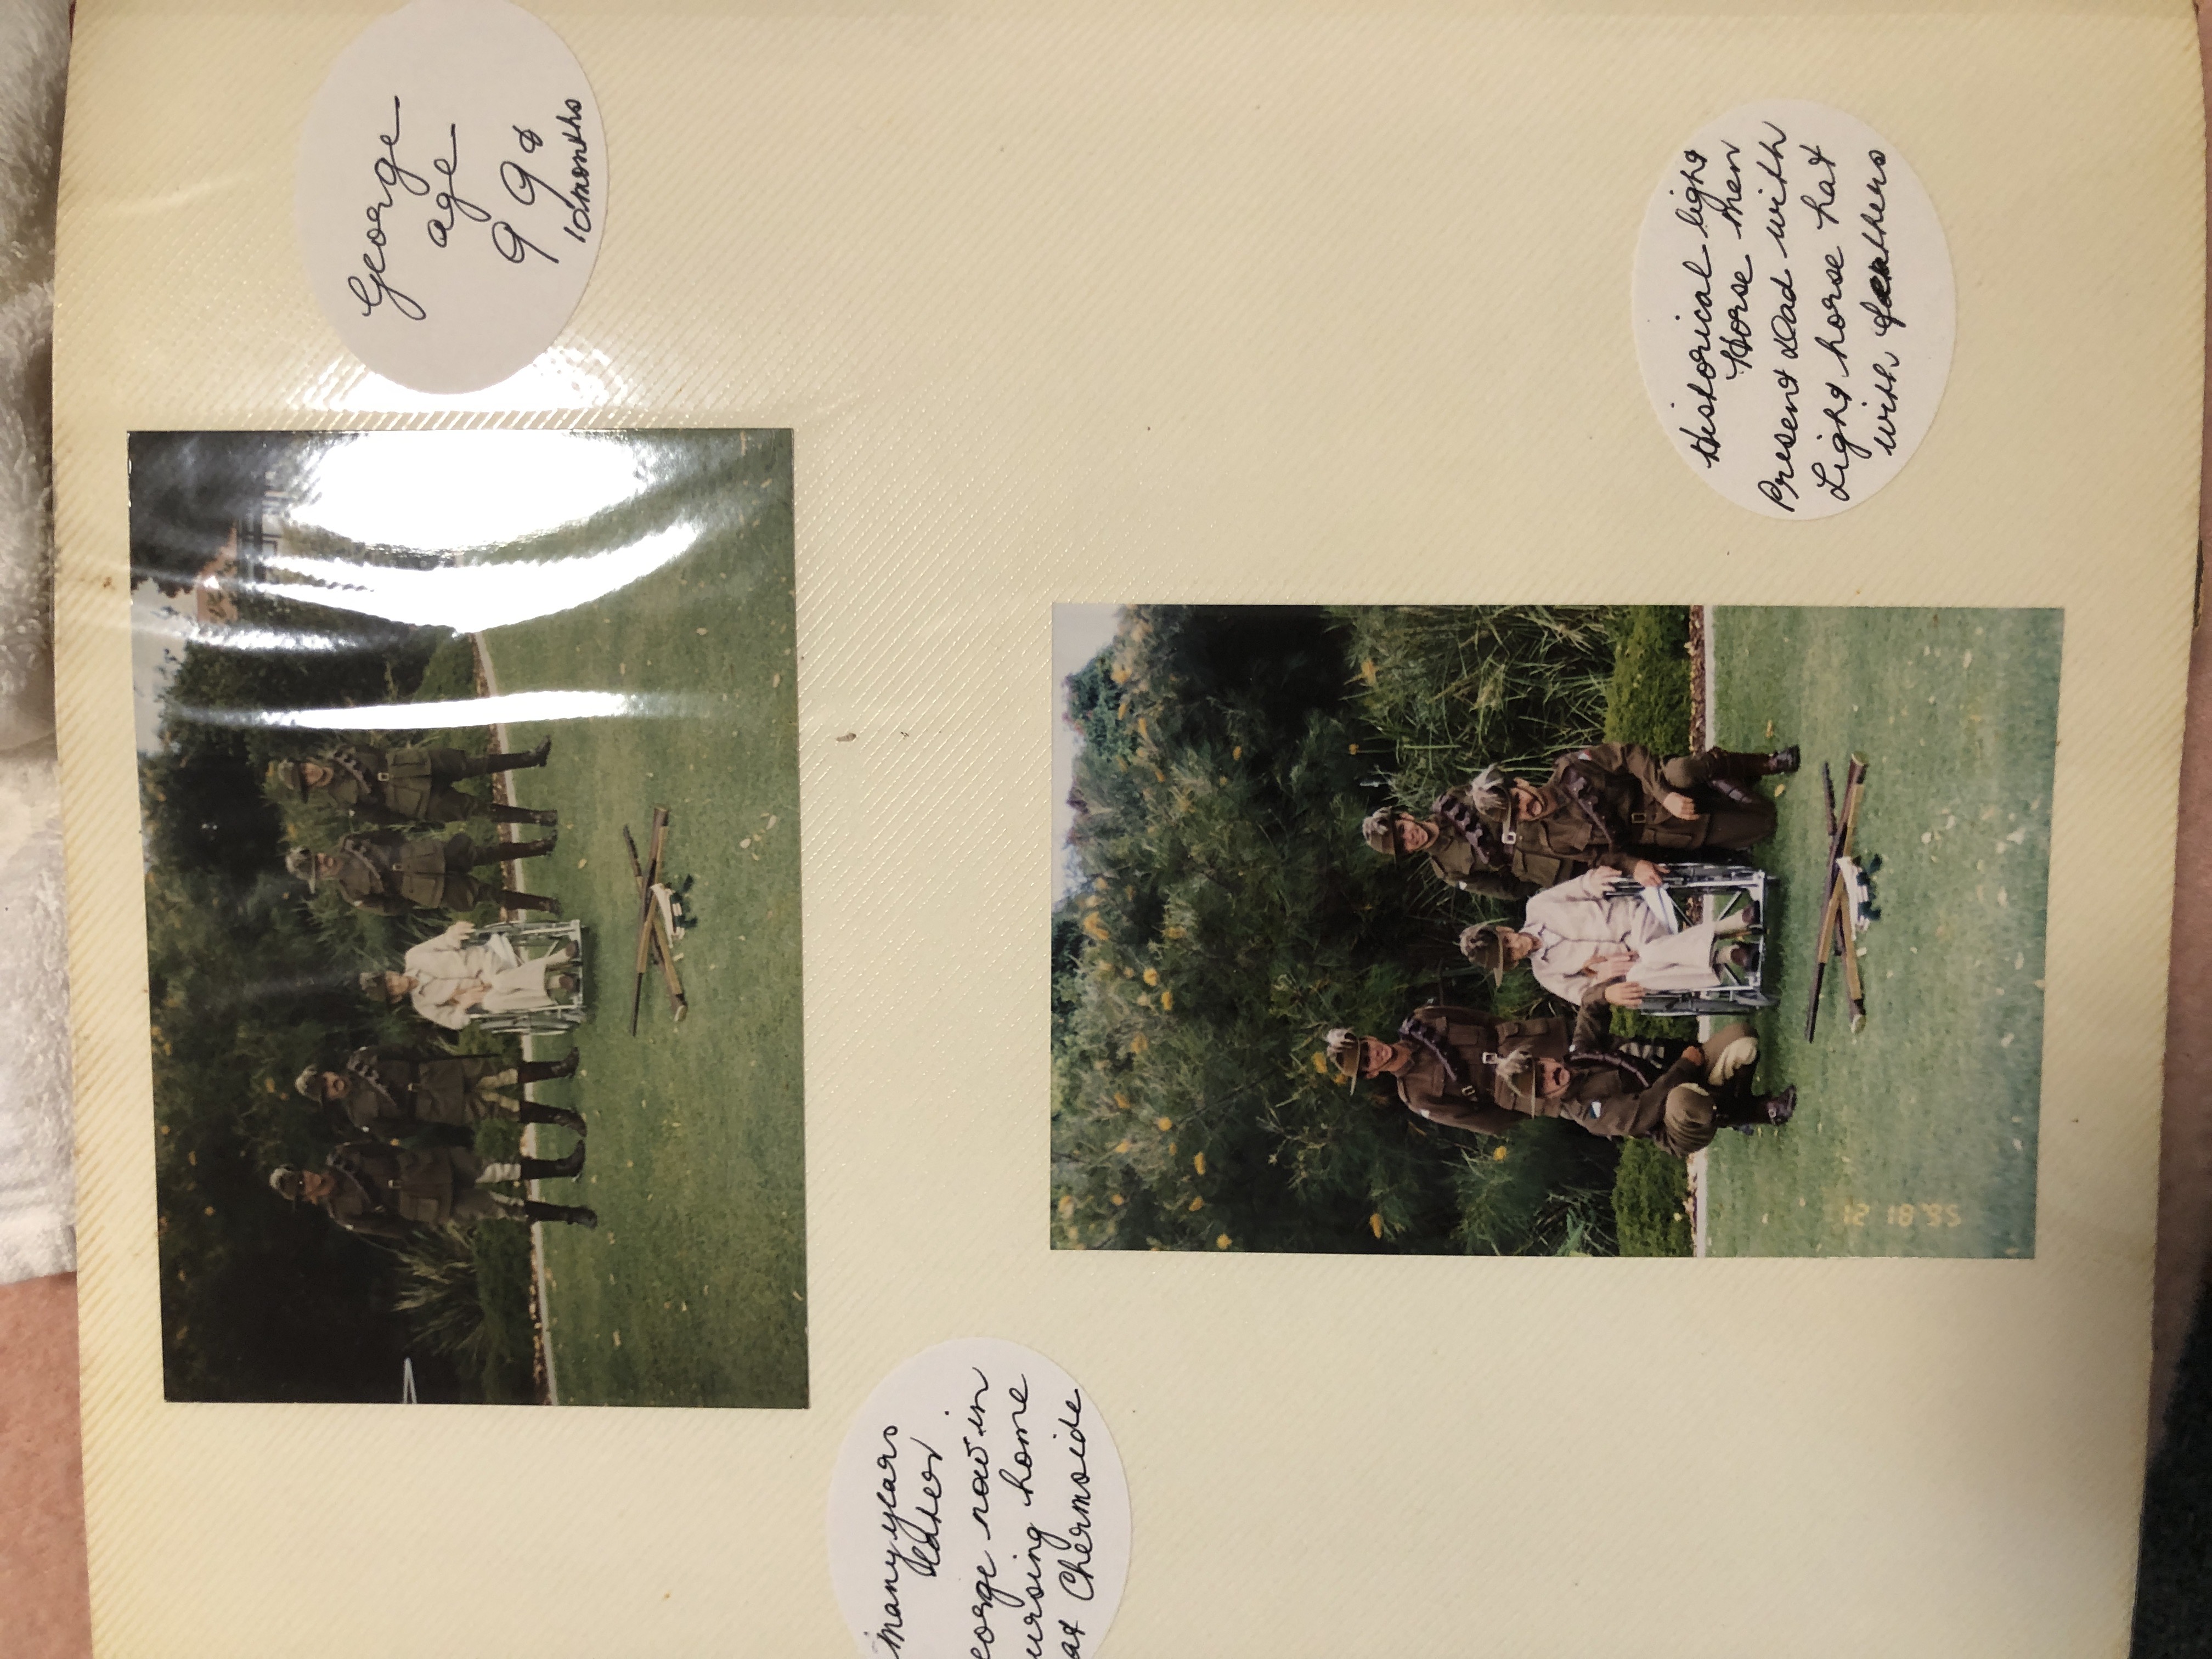 George
age
99 &
10 months
many years
later
eorge now in
ursing home
at Chermside
Historical light
Horse men
Present Dad with
Light horse hat
with feathers